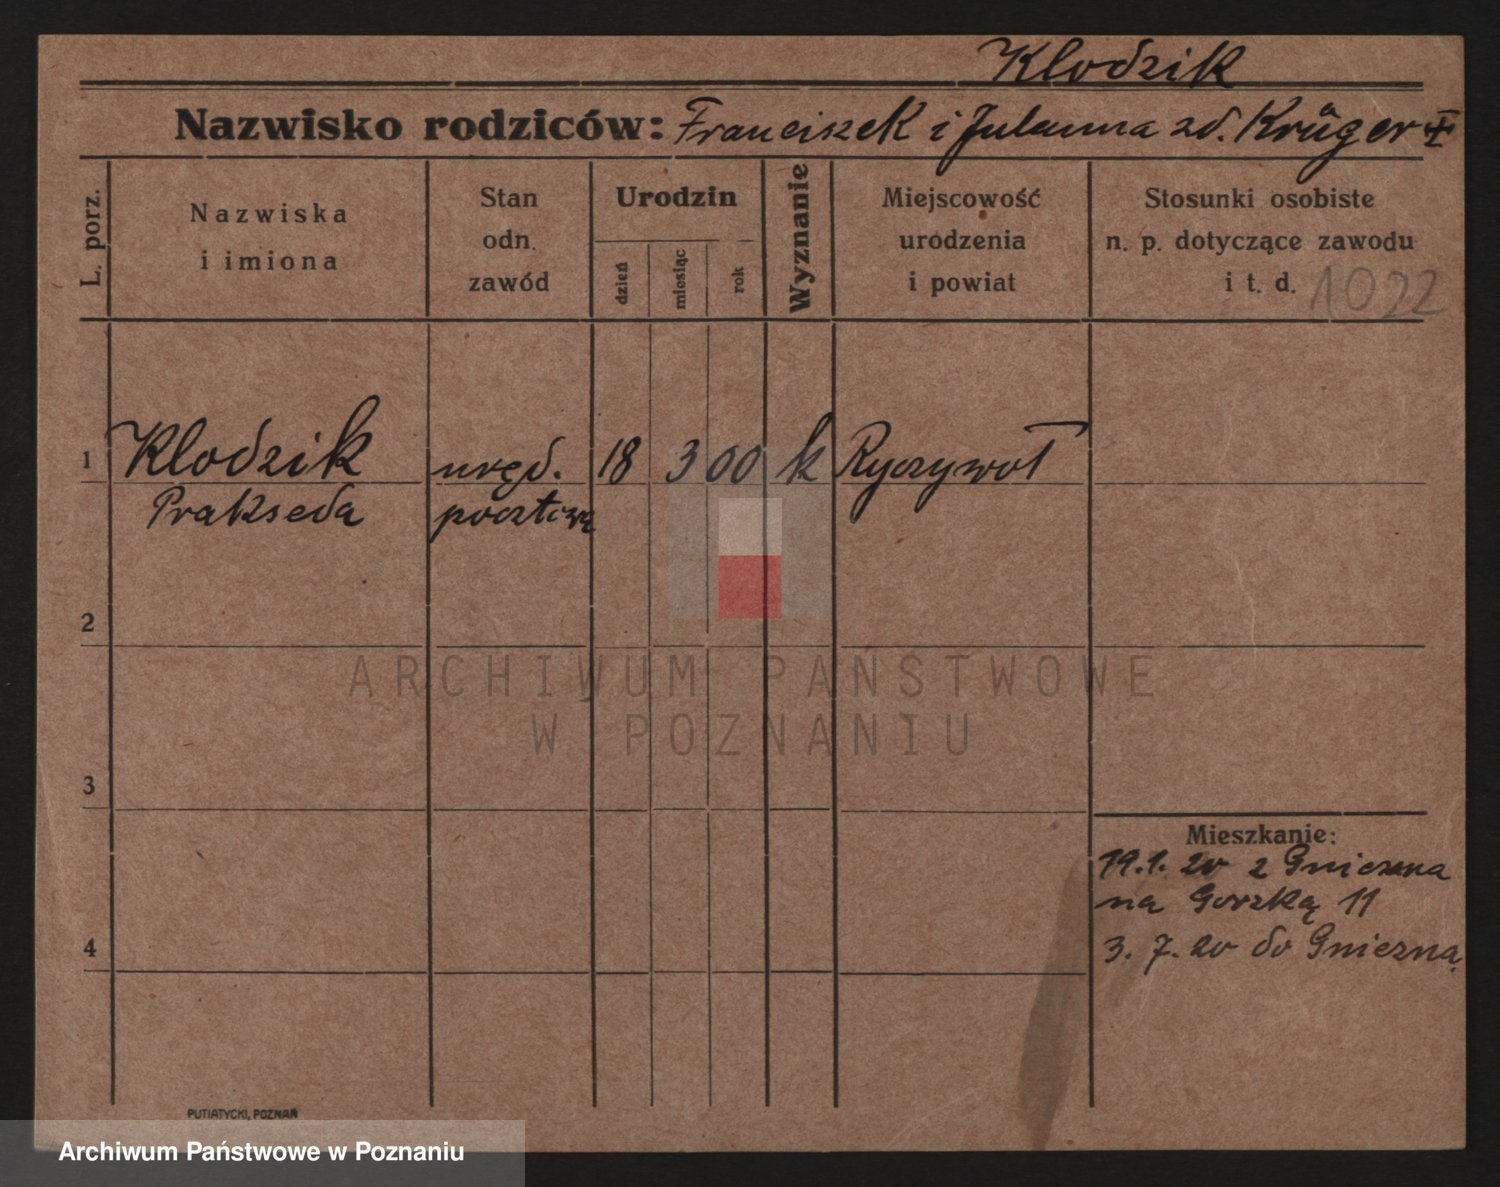 Klodzik
Nazwisko rodziców: Franciszek i Julanna zd. Krůger
L. porz.
Nazwiska i imiona
Stan odn. zawód
Urodzin
dzień
miesiąc
rok
Wyznanie
Miejscowość urodzenia i powiat
Stosunki osobiste n. p. dotyczące zawodu i t. d.
1022
1 Klodzik uręd. 18 3 00 k Ryczywoł
Prakseda pocztową
2
ARCHIWUM PAŃSTWOWE
W POZNANIU
3
Mieszkanie:
19.1. 20 z Gniezna
na Gorzką 11
4
3. 7. 20 do Gniezna
PUTIATYCKI, POZNAŃ
Archiwum Państwowe w Poznaniu